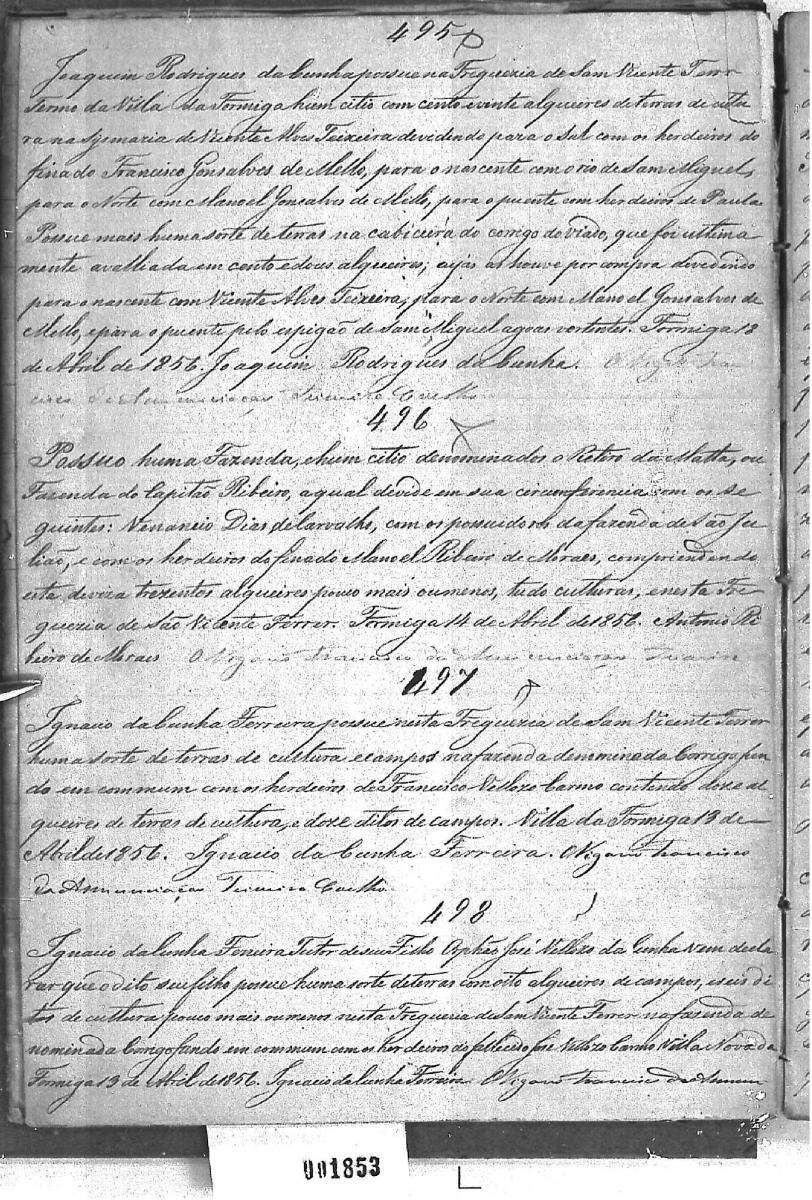 495
Joaquim Rodrigues da Cunha possue na Freguezia de Sam Vicente Ferr
Termo da Villa da Formiga hum citio com cento e vinte alqueires de terras de cultu
ra na Sysmaria de Vicente Alves Teixeira devedindo para o Sul com os herdeiros do
finado Francisco Gonsalves de Mello, para o nascente com o rio de Sam Miguel,
para o Norte com Manoel Gonsalves de Mello, para o puente com herdeiros de Paula
Possue mais huma sorte de terras na cabiceira do corrigo do viado, que foi ultima
mente avalliada em cento e dous alqueires; cujas as houve por compra devedindo
para o nascente com Vicente Alves Teixeira; para o Norte com Manoel Gonsalves de
Mello, e para o puente pelo espigão de Sam Miguel agoas vertentes. Formiga 12
de Abril de 1856. Joaquim Rodrigues da Cunha. O Vigro Fran
cisco da Annunciaçao Teixeira Coelho
496
Possuo huma Fazenda, e hum citio denominados o Retiro da Matta, ou
Fazenda do Capitão Ribeiro, a qual devide em sua circumferencia com os se
guintes: Venancio Dias de Carvalho, com os possuidores da fazenda de São Ju
lião, e com os herdeiros do finado Manoel Ribeiro de Moraes, comprienden do
esta deviza trezentos alqueires pouco mais ou menos, tudo culturas, e nesta Fre
guezia de São Vicente Ferrer. Formiga 14 de Abril de 1856. Antonio Ri
beiro de Moraes O Vigario Francisco da Annunciaçao
497
Ignacio da Cunha Ferreira possue nesta Freguezia de Sam Vicente Ferrer
huma sorte de terras de cultura e campos na fazenda denominada Corrigo fun
do em commum com os herdeiros de Francisco Vellozo Carmo contendo doze al
queires de terras de cultura, e doze ditos de campos. Villa da Formiga 13 de
Abril de 1856. Ignacio da Cunha Ferreira. O Vigario Francisco
da Annunciaçao Teixeira Coelho.
498
Ignacio da Cunha Ferreira Tutor de seu Filho Orphão José Vellozo da Cunha vem decla
rar que o dito seu filho possue huma sorte de terras com oito alqueires de campos, e seis di
tos de cultura pouco mais ou menos nesta Freguezia de Sam Vicente Ferrer na fazenda de
nominada Corrigo fundo em commum com os herdeiros do fallecido José Vellozo Carmo Villa Nova da
Formiga 13 de Abril de 1856. Ignacio da Cunha Ferreira. O Vigario Francisco da Annun
001853